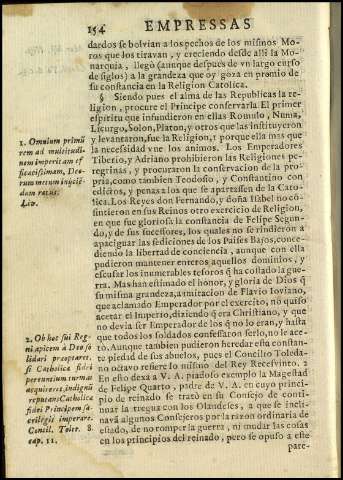 154 EMPRESSAS
dardos se bolvian a los pechos de los mismos Mo-
ros que los tiravan, y creciendo desde alli la Mo-
narquia, llegò (aunque despues de vn largo curso
de siglos) a la grandeza que oy goza en premio de
su constancia en la Religion Catolica.
§ Siendo pues el alma de las Republicas la re-
ligion, procure el Principe conservarla. El primer
espiritu que infundieron en ellas Romulo, Numa,
Licurgo, Solon, Platon, y otros que las instituyeron
y levantaron, fue la Religion, porque ella mas que
la necessidad vne los animos. Los Emperadores
Tiberio, y Adriano prohibieron las Religiones pe-
regrinas, y procuraron la conservacion de la pro-
pria, como tambien Teodosio, y Constantino con
edictos, y penas a los que se apartassen de la Cato-
lica. Los Reyes don Fernando, y doña Isabel no cõ-
sintieron en sus Reinos otro exercicio de Religion,
en que fue gloriosa la constancia de Felipe Segun-
do, y de sus sucessores, los quales no se rindieron a
apaciguar las sediciones de los Paises Bajos, conce-
diendo la libertad de conciencia, aunque con ella
pudieron mantener enteros aquellos dominios, y
escusar los inumerables tesoros q̃ ha costado la gue-
rra. Mas han estimado el honor, y gloria de Dios q̃
su misma grandeza, a imitacion de Flavio Ioviano,
que aclamado Emperador por el exercito, no quiso
acetar el Imperio, diziendo q̃ era Christiano, y que
no devia ser Emperador de los q̃ no lo eran, y hasta
que todos los soldados confessaron serlo, no le ace-
tò. Aunque tambien pudieron heredar esta constan-
te piedad de sus abuelos, pues el Concilio Toleda-
no octavo refiere lo mismo del Rey Recesvinto. 2
En ello dexò a V. A. piadoso exemplo la Magestad
de Felipe Quarto, padre de V. A. en cuyo princi-
pio de reinado se tratò en su Consejo de conti-
nuar la tregua con los Olandeses, a que se incli-
navã algunos Consejeros por la razon ordinaria de
estado, de no romper la guerra, ni mudar las cosas
en los principios del reinado, pero se opuso a este
pare-
1. Omnium primũ
rem ad multitudi-
nem imperitam ef
ficatissimam, Deo-
rum metum injiciẽ
dam ratus.
Liv.
2. Ob hoc sui Reg-
ni apicem a Deo so
lidari præoptaret,
si Catholica fidei
perennium turmas
acquireret, indignũ
reputans Catholica
fidei Principem sa-
crilegis imperare.
Concil. Toler. 8.
cap. 11.